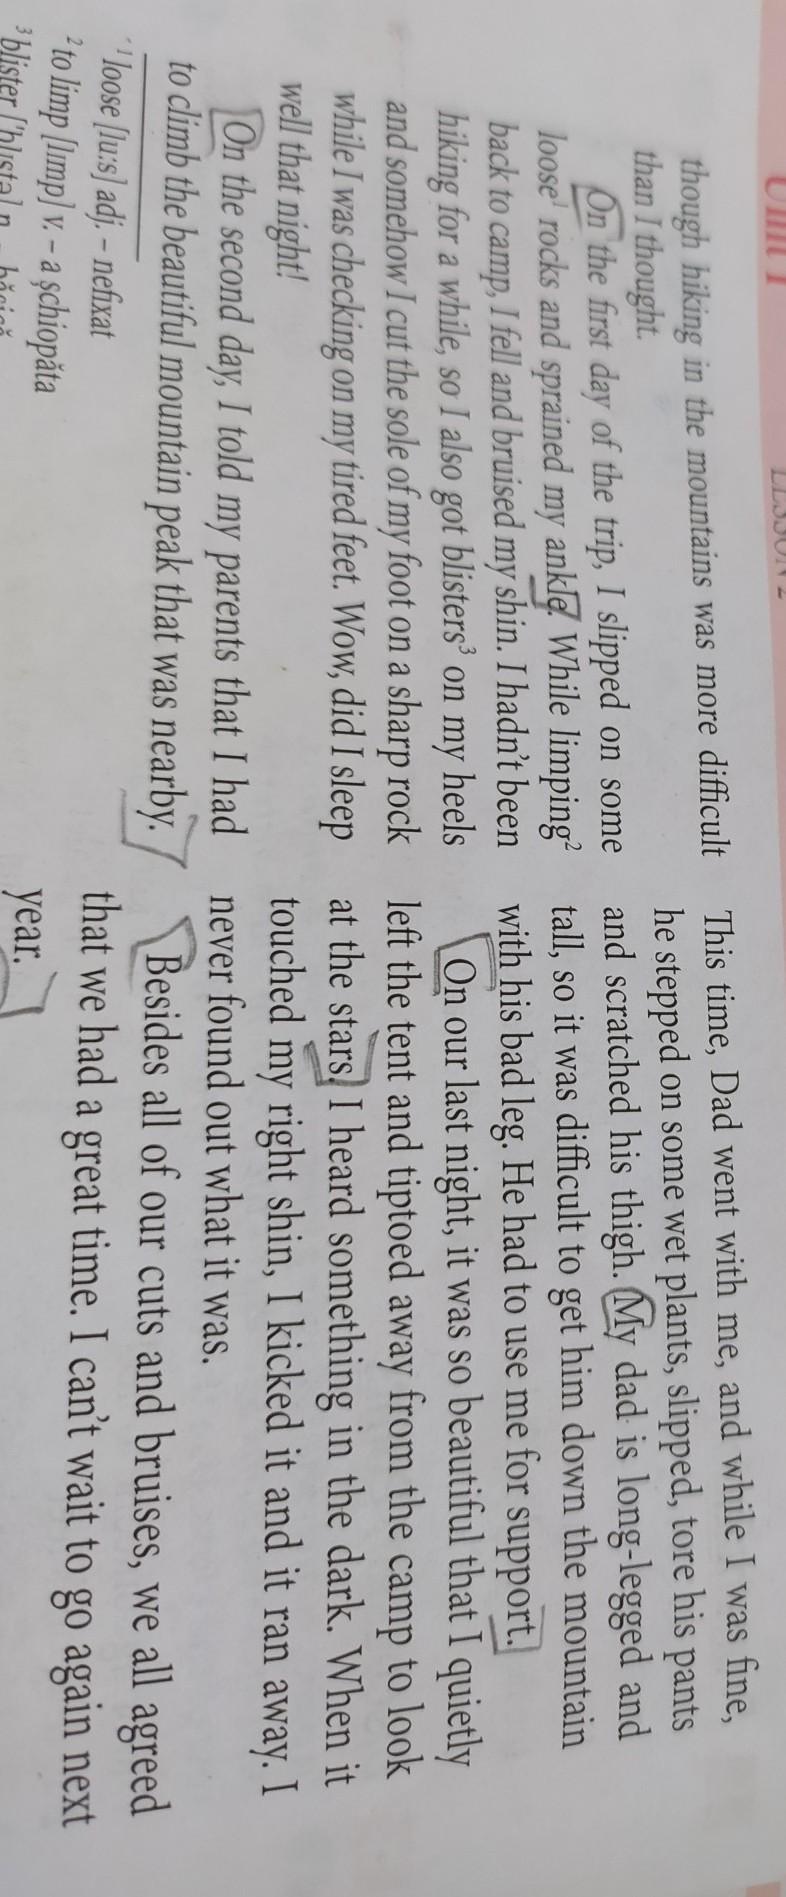 Unit 1
LESSON 2
though hiking in the mountains was more difficult
than I thought.
On the first day of the trip, I slipped on some
loose¹ rocks and sprained my ankle. While limping²
back to camp, I fell and bruised my shin. I hadn't been
hiking for a while, so I also got blisters³ on my heels
and somehow I cut the sole of my foot on a sharp rock
while I was checking on my tired feet. Wow, did I sleep
well that night!
On the second day, I told my parents that I had
to climb the beautiful mountain peak that was nearby.
¹ loose [lu:s] adj. – nefixat
² to limp [lɪmp] v. – a șchiopăta
³ blister ['blɪstə] n. – bășică
This time, Dad went with me, and while I was fine,
he stepped on some wet plants, slipped, tore his pants
and scratched his thigh. My dad is long-legged and
tall, so it was difficult to get him down the mountain
with his bad leg. He had to use me for support.
On our last night, it was so beautiful that I quietly
left the tent and tiptoed away from the camp to look
at the stars. I heard something in the dark. When it
touched my right shin, I kicked it and it ran away. I
never found out what it was.
Besides all of our cuts and bruises, we all agreed
that we had a great time. I can't wait to go again next
year.